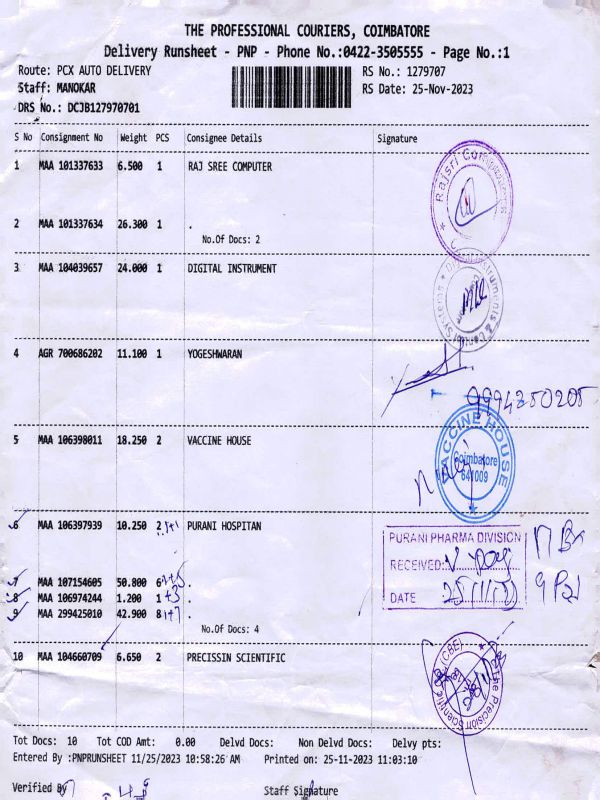 THE PROFESSIONAL COURIERS, COIMBATORE
Delivery Runsheet - PNP - Phone No.:0422-3505555 - Page No.:1
Route: PCX AUTO DELIVERY RS No.: 1279707
Staff: MANOKAR RS Date: 25-Nov-2023
DRS No.: DCJB127970701
S No Consignment No Weight PCS Consignee Details Signature
1 MAA 101337633 6.500 1 RAJ SREE COMPUTER
2 MAA 101337634 26.300 1 .
No.Of Docs: 2
3 MAA 104039657 24.000 1 DIGITAL INSTRUMENT
4 AGR 700686202 11.100 1 YOGESHWARAN
9994350205
5 MAA 106398011 18.250 2 VACCINE HOUSE
VACCINE HOUSE
Coimbatore
641009
6 MAA 106397939 10.250 2 1+1 PURANI HOSPITAN
PURANI PHARMA DIVISION
RECEIVED:
DATE
7 MAA 107154605 50.800 6 .
8 MAA 106974244 1.200 1 +3 .
9 MAA 299425010 42.900 8 1+7 .
No.Of Docs: 4
10 MAA 104660709 6.650 2 PRECISSIN SCIENTIFIC
Tot Docs: 10 Tot COD Amt: 0.00 Delvd Docs: Non Delvd Docs: Delvy pts:
Entered By :PNPRUNSHEET 11/25/2023 10:58:26 AM Printed on: 25-11-2023 11:03:10
Verified By Staff Signature